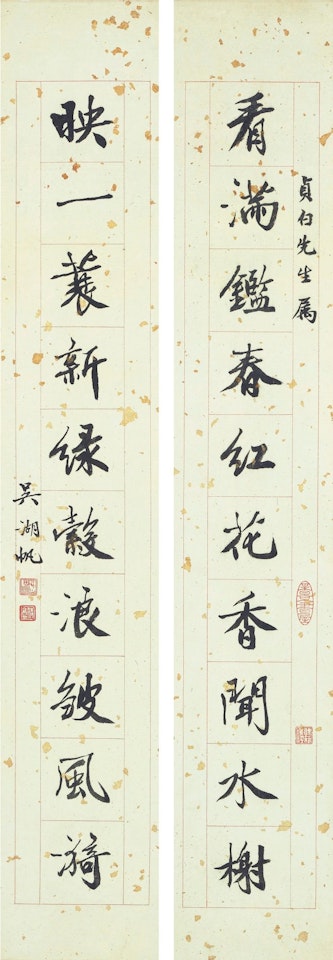 貞白先生屬
看滿鑑春紅花香聞水榭
映一蓑新綠縠浪皴風漪
吳湖帆